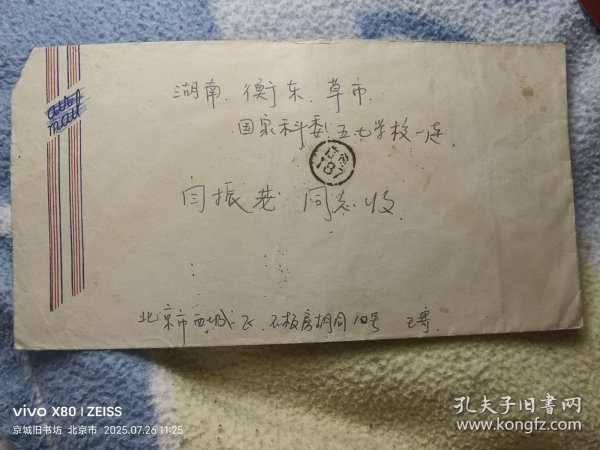 湖南. 衡东. 草市.
国家科委五七学校一连.
187
闫振巷 同志收.
北京市西城区. 石板房胡同10号 王寄
vivo X80 | ZEISS
京城旧书坊 北京市 2025.07.26 11:25
孔夫子旧书网
www.kongfz.com